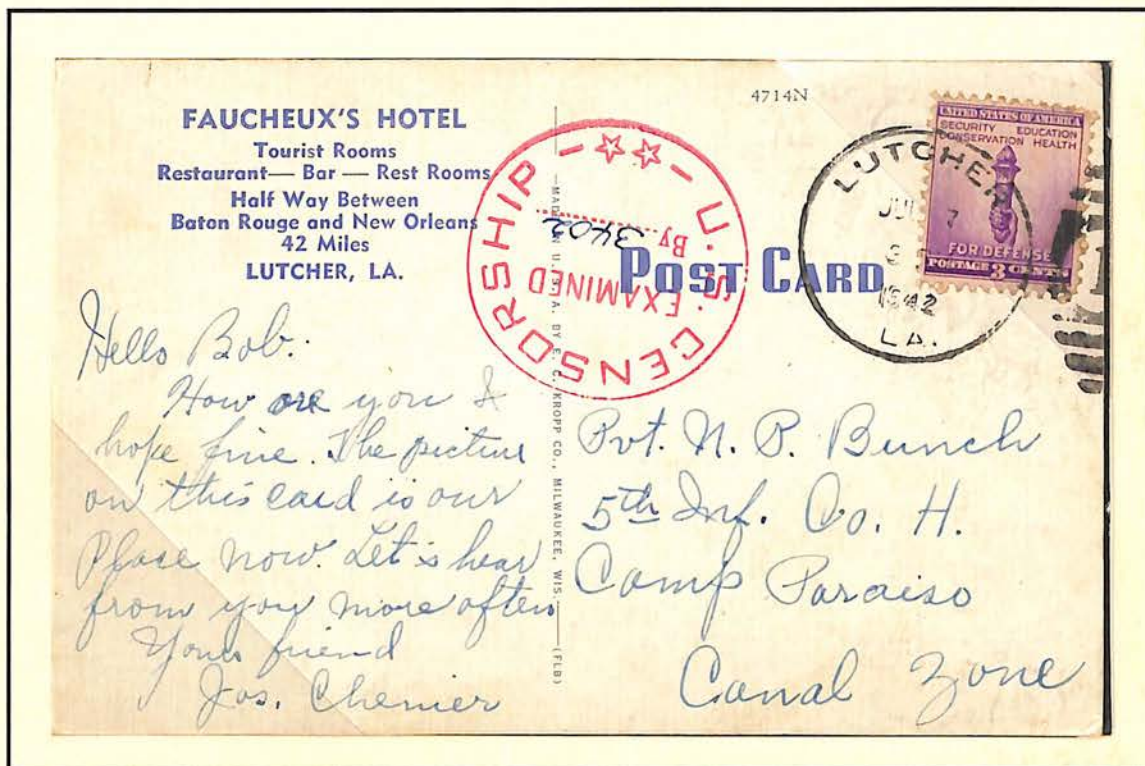 FAUCHEUX'S HOTEL
Tourist Rooms
Restaurant — Bar — Rest Rooms
Half Way Between
Baton Rouge and New Orleans
42 Miles
LUTCHER, LA.
4714N
POST CARD
U.S. CENSORSHIP
EXAMINED
By 3402
LUTCHER
1942
LA.
UNITED STATES OF AMERICA
SECURITY EDUCATION
CONSERVATION HEALTH
FOR DEFENSE
POSTAGE 3 CENTS
MADE IN U.S.A. BY E. C. KROPP CO., MILWAUKEE, WIS. (FLB)
Hello Bob.
How are you I
hope fine. The picture
on this card is our
Place now. Let's hear
from you more often
Yours friend
Jos. Chenier
Pvt. N. P. Bunch
5th Inf. Co. H.
Camp Paraiso
Canal Zone